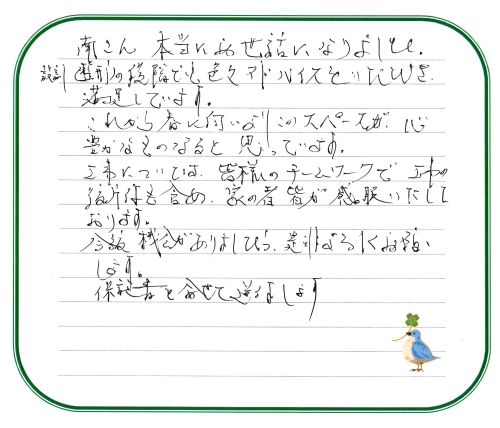 南さん 本当にお世話になりました。
設計 の段階でも色々アドバイスをいただき、
満足しています。
これから春に向いよりこのスペースが、心
豊かなものなると思っています。
工事については、皆様のチームワークで 工事の
も含め、家の者皆が感服いたして
おります。
今後 機会がありましたら、是非よろしくお願い
します。
保証書と合せて送ります